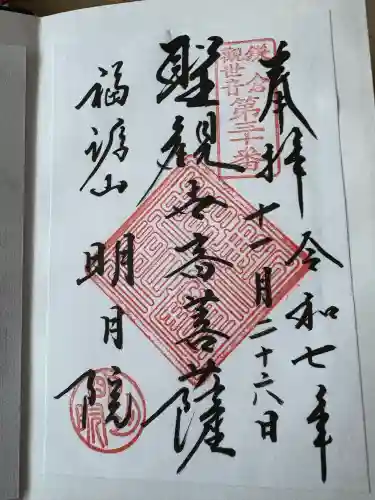 奉拝 令和七年
十一月二十六日
鎌倉
観世音
第三十番
聖観世音菩薩
福源山 明月院